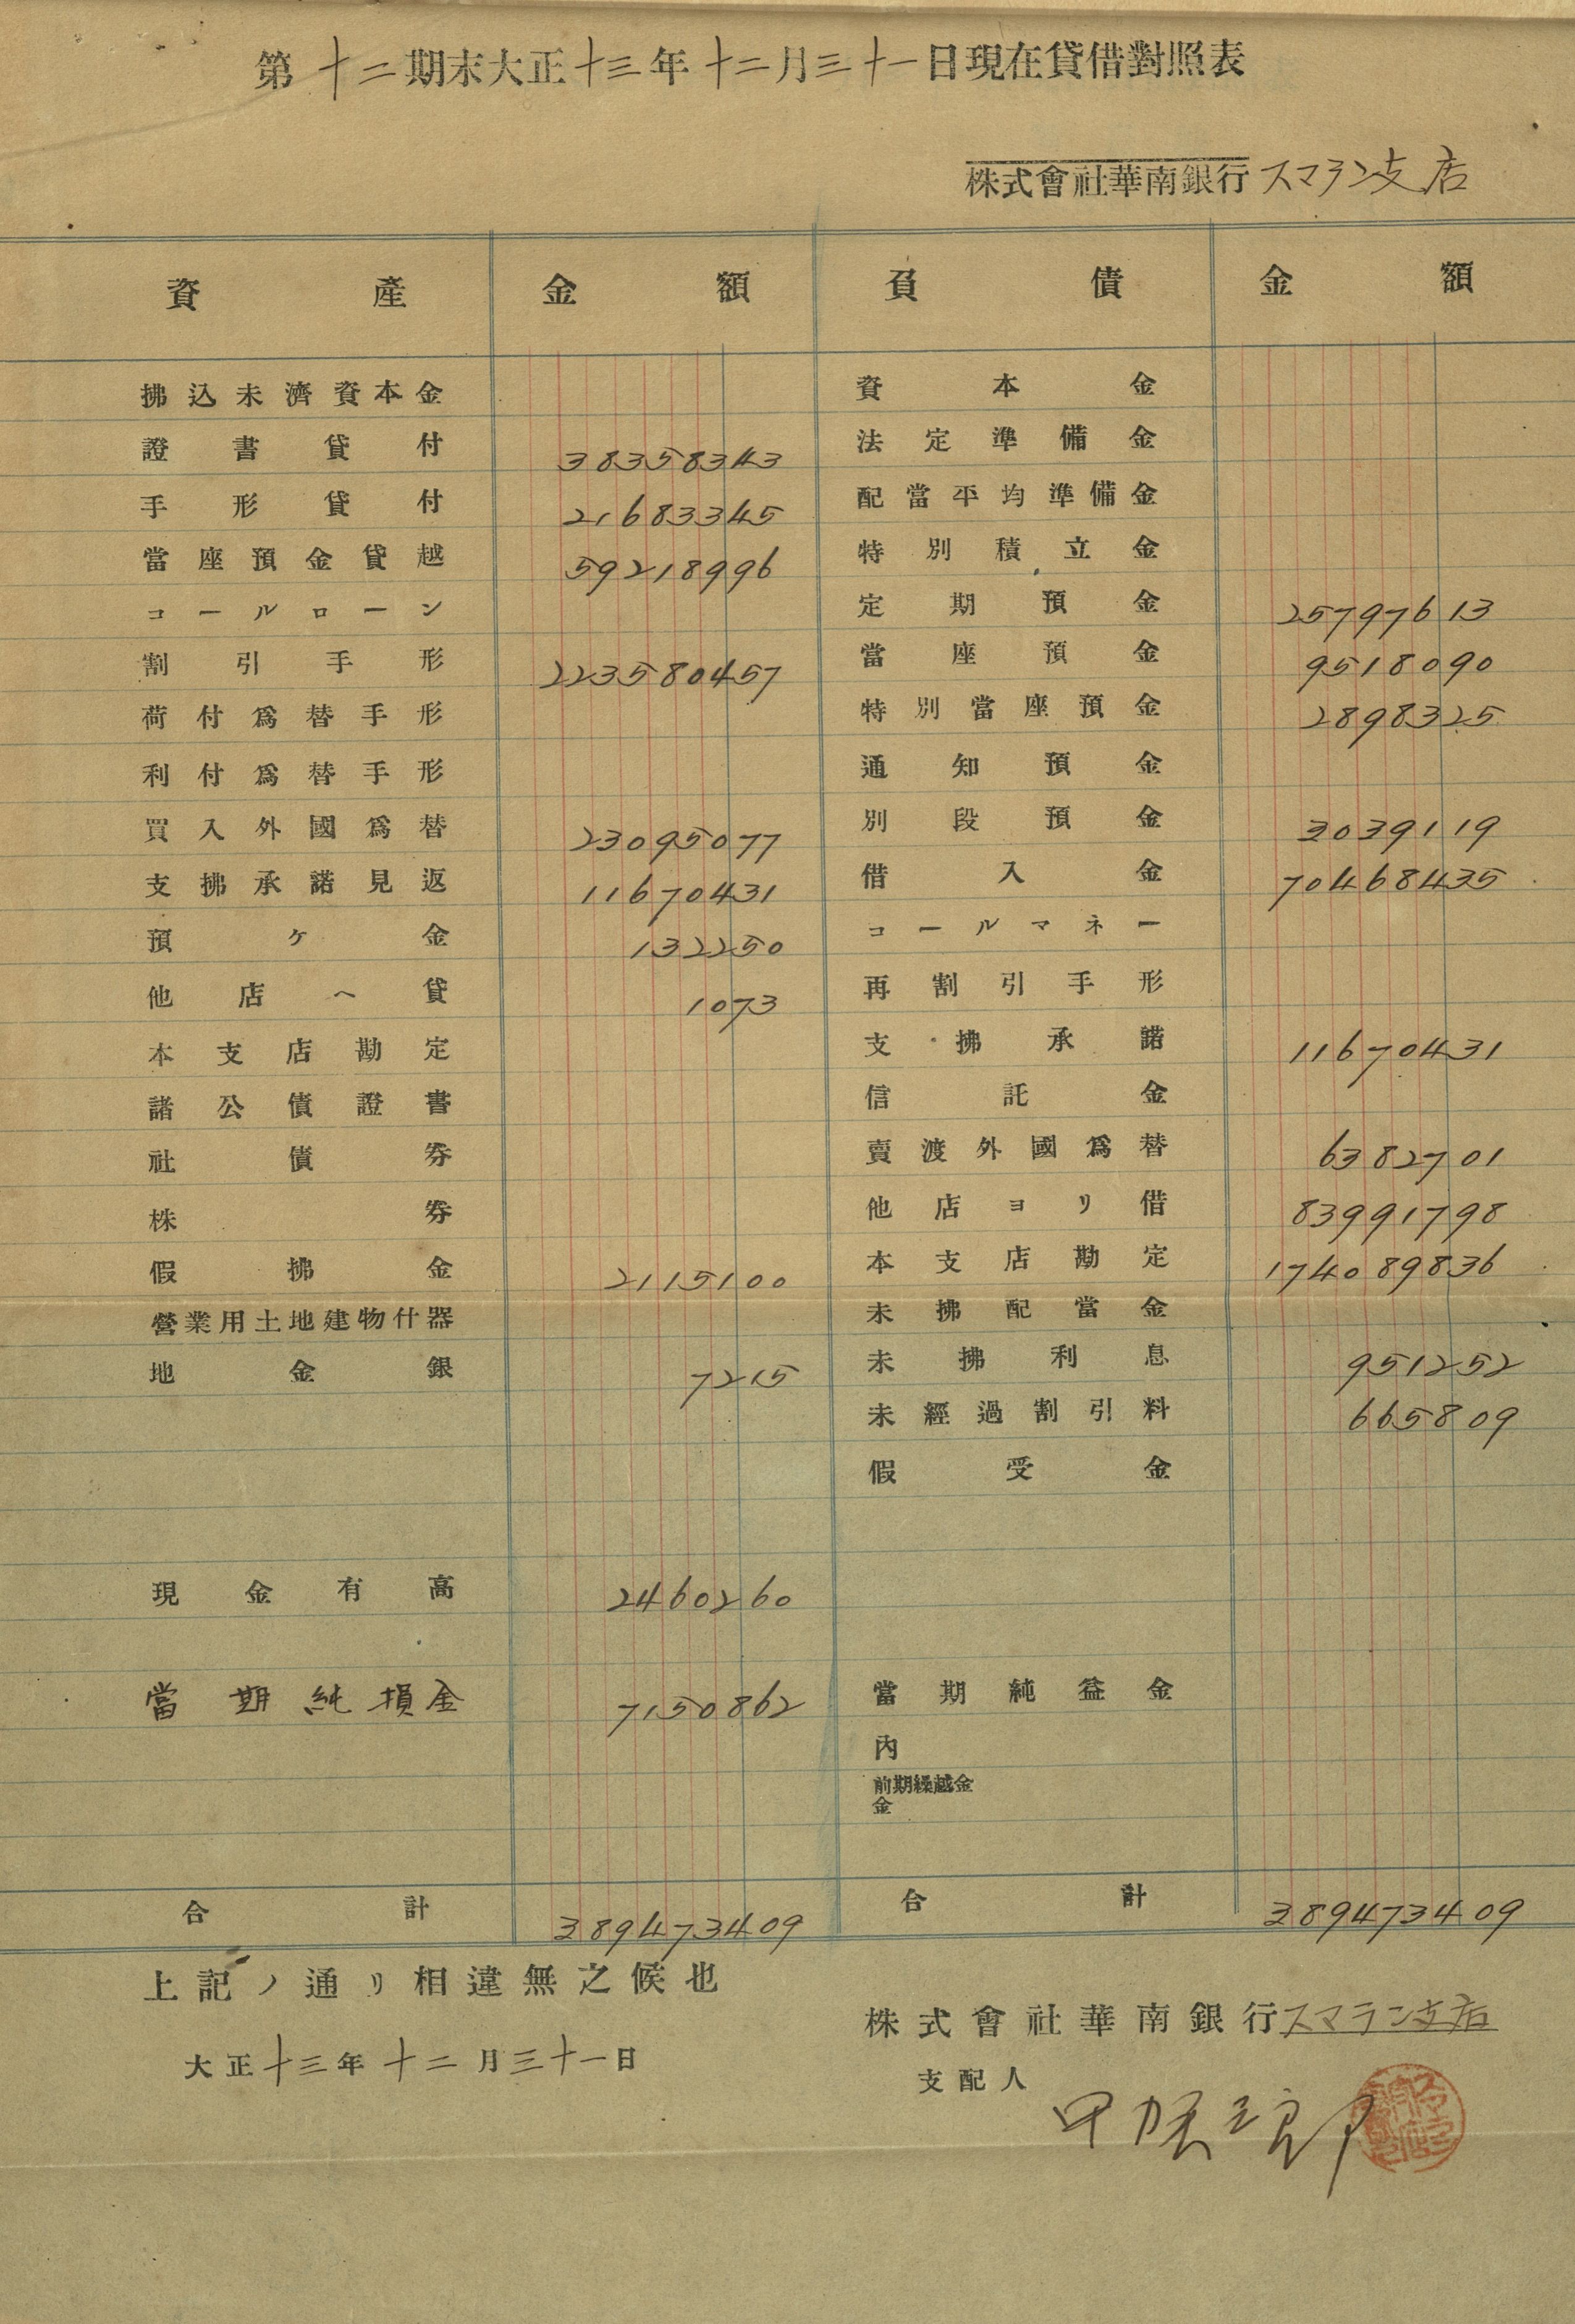 第十二期末大正十三年十二月三十一日現在貸借對照表
株式會社華南銀行スマラン支店
資產 金額
拂込未濟資本金
證書貸付 38358343
手形貸付 21683345
當座預金貸越 59218996
コールローン
割引手形 223580457
荷付爲替手形
利付爲替手形
買入外國爲替 23095077
支拂承諾見返 11670431
預ケ金 132250
他店ヘ貸 1073
本支店勘定
諸公債證書
社債券
株券
假拂金 2115100
營業用土地建物什器
地金銀 7215
現金有高 2460260
當期純損金 7150862
合計 389473409
負債 金額
資本金
法定準備金
配當平均準備金
特別積立金
定期預金 25797613
當座預金 9518090
特別當座預金 2898325
通知預金
別段預金 3039119
借入金 70468435
コールマネー
再割引手形
支拂承諾 11670431
信託金
賣渡外國爲替 6382701
他店ヨリ借 83991798
本支店勘定 174089836
未拂配當金
未拂利息 951252
未經過割引料 665809
假受金
當期純益金
內
前期繰越金
金
合計 389473409
上記ノ通リ相違無之候也
大正十三年十二月三十一日
株式會社華南銀行スマラン支店
支配人
甲賀三郎